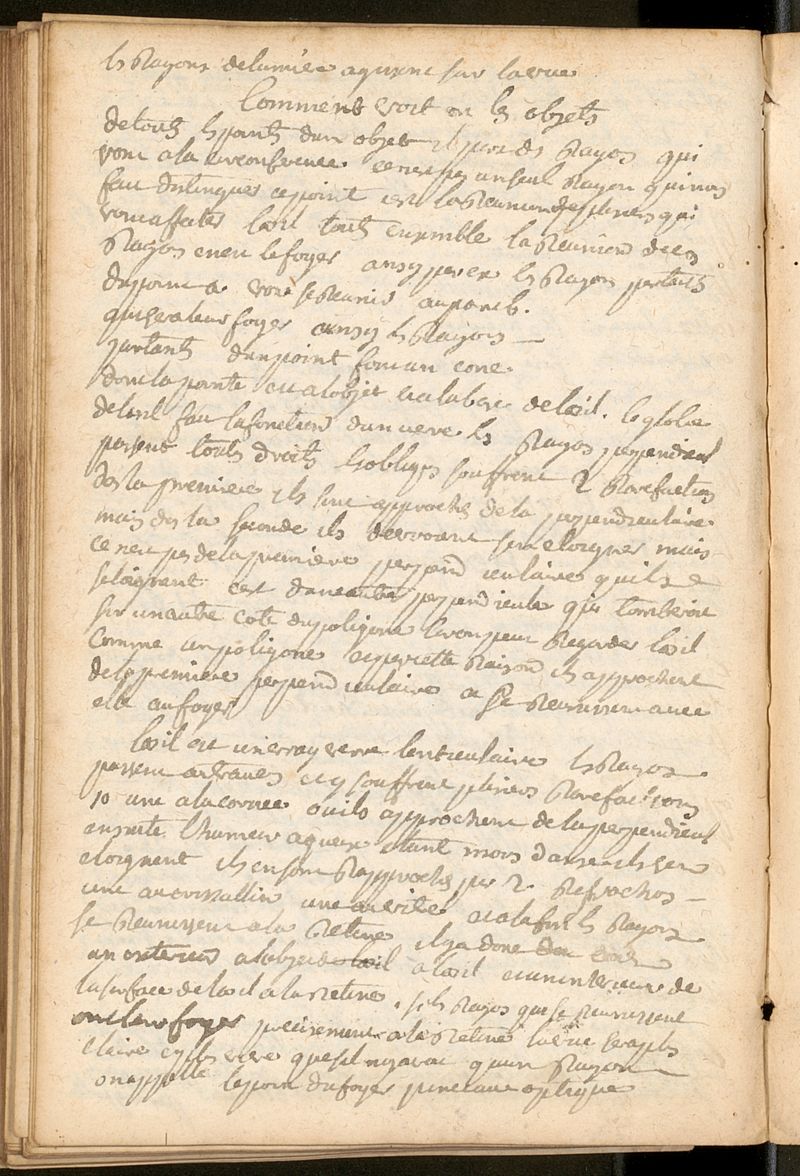 les Rayons de lumiere agissent sur la vue
Comment voit on les objets
de touts les points dun objet il part des Rayos qui
vont a la circonference ce nest pas un seul Rayon qui nous
fait distinguer ce point cest la Reunion de plusieurs qui
vont affecter loeil touts ensemble la Reunion de ces
Rayos en est le foyer ainsy les Rayos partants
du point a vont se Reunir au point b.
qui sera leur foyer ainsy les Rayons
partants dun point font un cone
dont la pointe est a lobjet et la base a loeil. le globe
de loeil fait la fonction dun verre les Rayos perpendicul
passent touts droits les obliqs souffrent 2 Rarefactios
des la premiere ils sont approchés de la perpendiculaire
mais des la seconde ils devroient sen eloigner mais
ce nest pas de la premiere perpendiculaire quils
seloignent cest dune autre perpendiculre qui tomberoit
sur un autre coté du poligone lon peut Regarder loeil
comme un poligone et par cette Raison ils approchent
de la premiere perpendiculaire et se Reunissent avec
elle au foyer
loeil est un vray verre lenticulaire les Rayos
passent a travers et y souffrent plusieurs Rarefactions
1o une a la cornee ou ils approchent de la perpendicul
ensuite lhumeur aqueux etant moins dense ils sen
eloignent ils en sont Rapprochés par 2 Refractios
une au cristallin une au vitré et a la fin les Rayons
se Reunissent a la Retine il y a donc un cone
un exterieur a lobjet a loeil et un interieur de
la surface de loeil a la Retine. si les Rayos qui se Reunissent
ont leur foyer precisement a la Retine la vue sera plus
claire et plus vive que sil ny avoit quun Rayon
on appelle le point du foyer pinceau optique